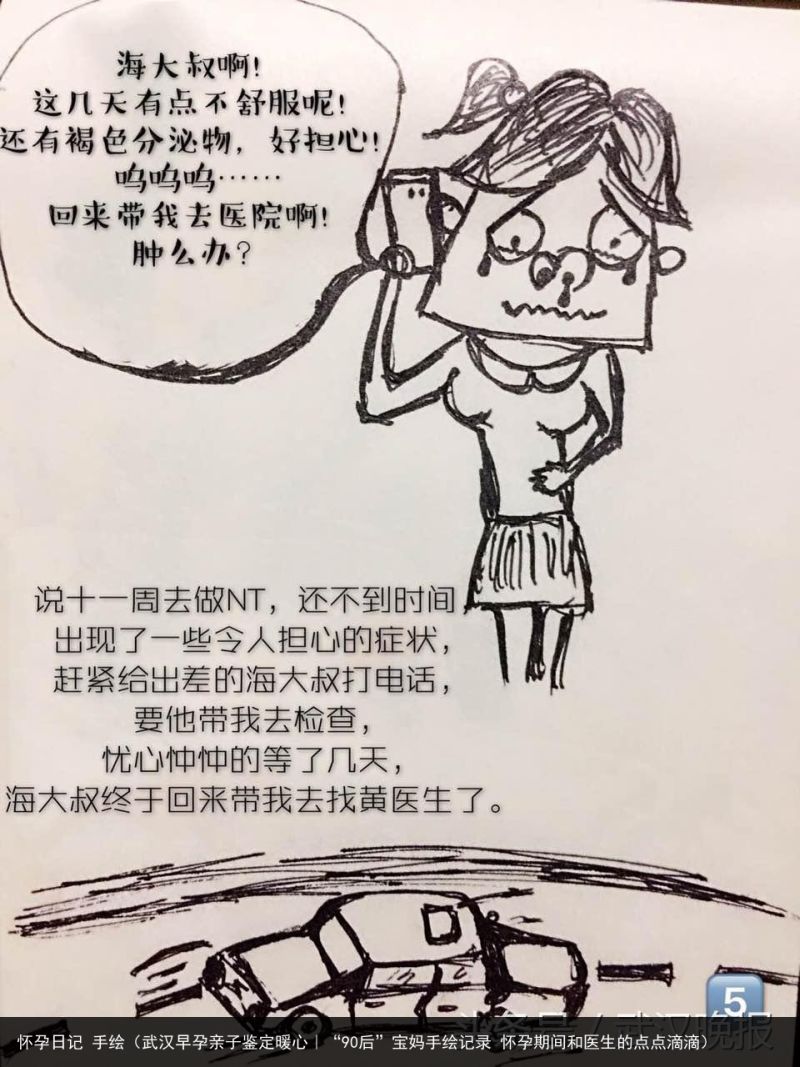 海大叔啊！
这几天有点不舒服呢！
还有褐色分泌物，好担心！
呜呜呜……
回来带我去医院啊！
肿么办？
说十一周去做NT，还不到时间
出现了一些令人担心的症状，
赶紧给出差的海大叔打电话，
要他带我去检查，
忧心忡忡的等了几天，
海大叔终于回来带我去找黄医生了。
5
怀孕日记 手绘（武汉早孕亲子鉴定暖心｜“90后”宝妈手绘记录 怀孕期间和医生的点点滴滴）